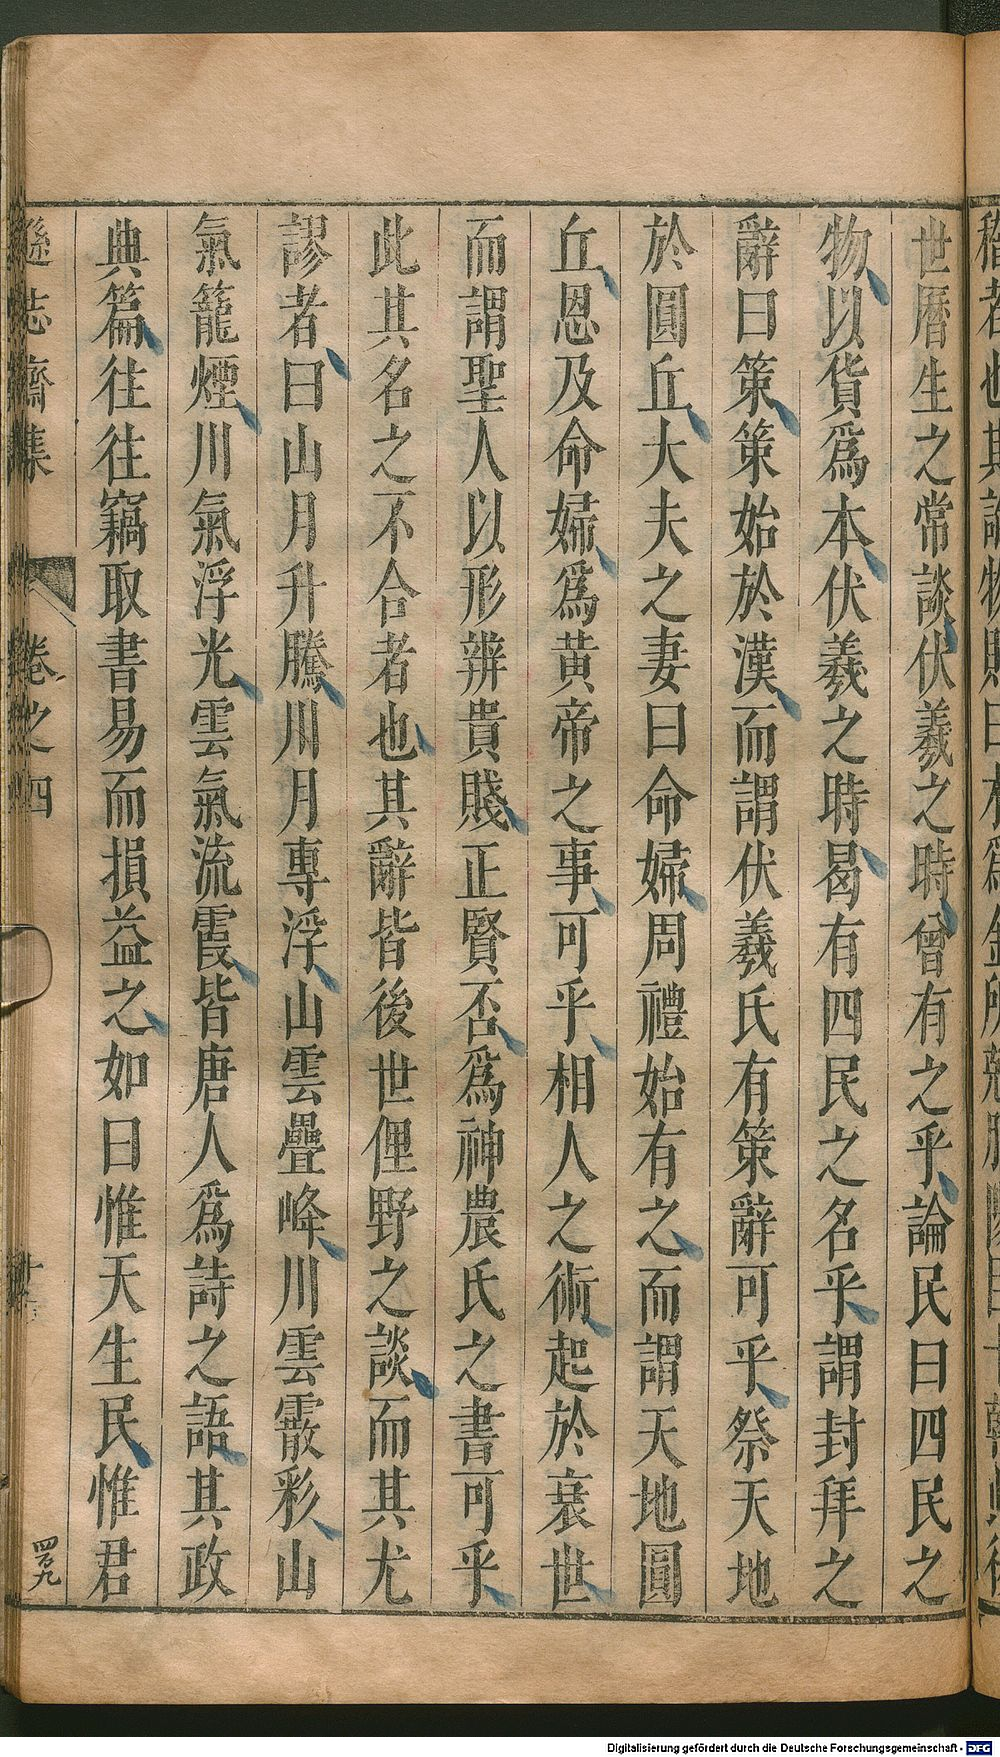 世曆生之常談伏羲之時曾有之乎論民曰四民之
物以貨爲本伏羲之時曷有四民之名乎謂封拜之
辭曰策策始於漢而謂伏羲氏有策辭可乎祭天地
於圓丘大夫之妻曰命婦周禮始有之而謂天地圓
丘恩及命婦爲黄帝之事可乎相人之術起於衰世
而謂聖人以形辨貴賤正賢否爲神農氏之書可乎
此其名之不合者也其辭皆後世俚野之談而其尤
謬者曰山月升騰川月專浮山雲疊峰川雲霰彩山
氣籠煙川氣浮光雲氣流霞皆唐人爲詩之語其政
典篇往往竊取書易而損益之如曰惟天生民惟君
遜志齋集
卷之四
四百九
Digitalisierung gefördert durch die Deutsche Forschungsgemeinschaft - DFG